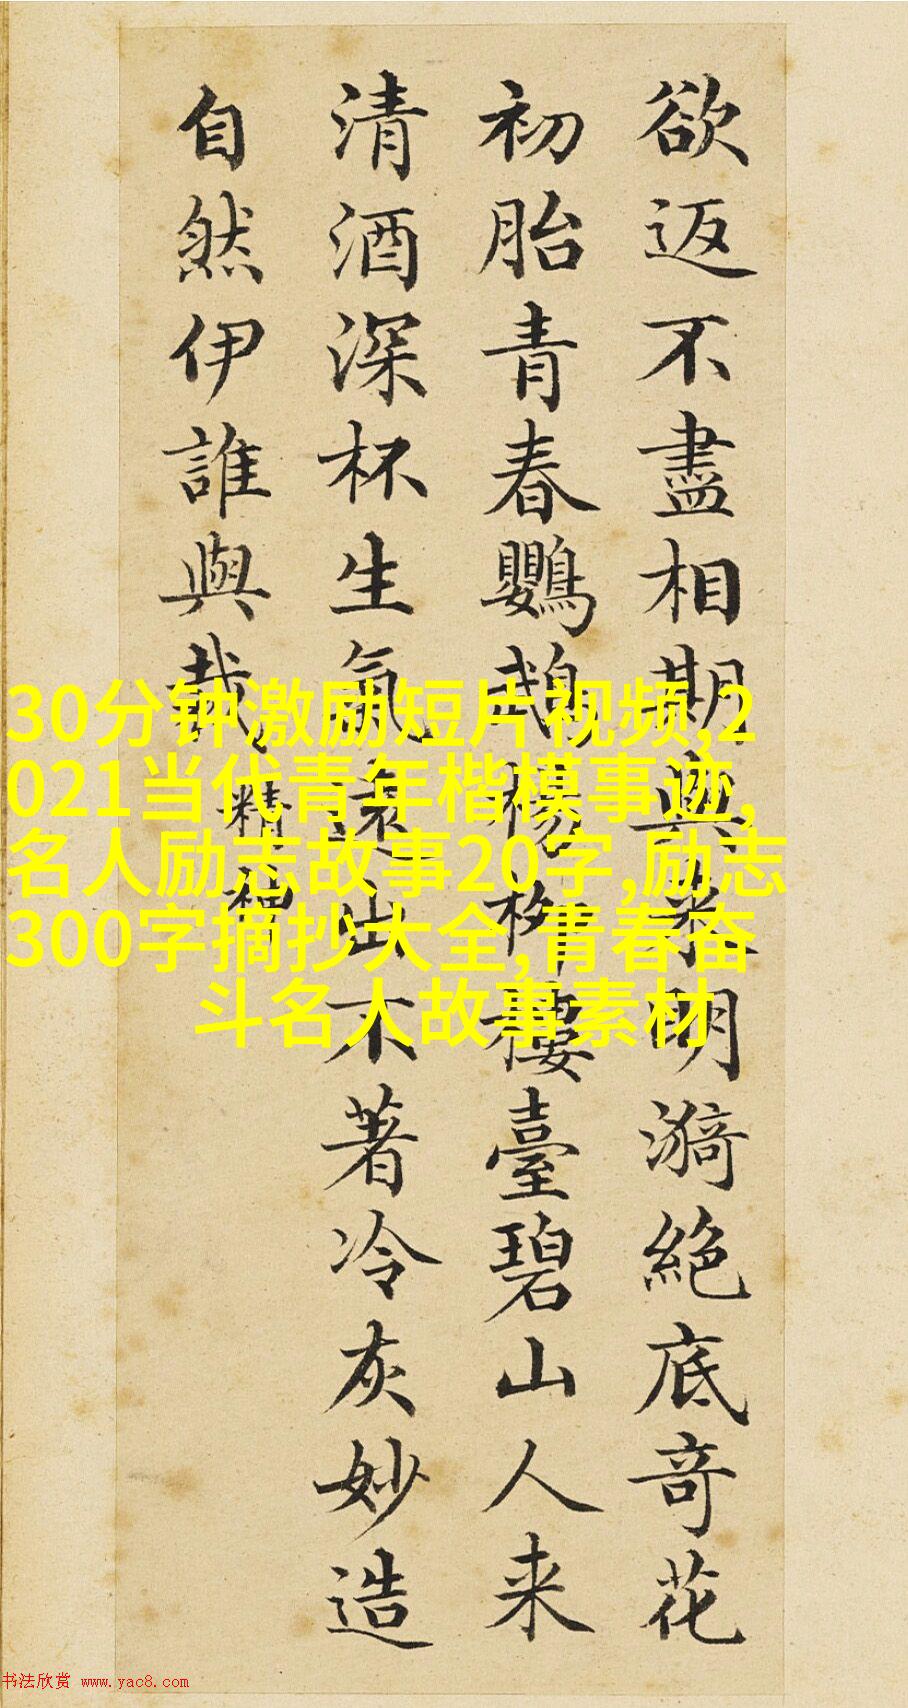 欲返不盡相期與来明漪絕底竒花
初胎青春鸚鵡楊柳樓臺碧山人来
清酒深杯生氣遠出不著冷灰妙造
自然伊誰與裁
精神
30分钟激励短片视频,2
021当代青年楷模事迹,
名人励志故事20字,励志
300字摘抄大全,青春奋
斗名人故事素材
书法欣赏 www.yac8.com